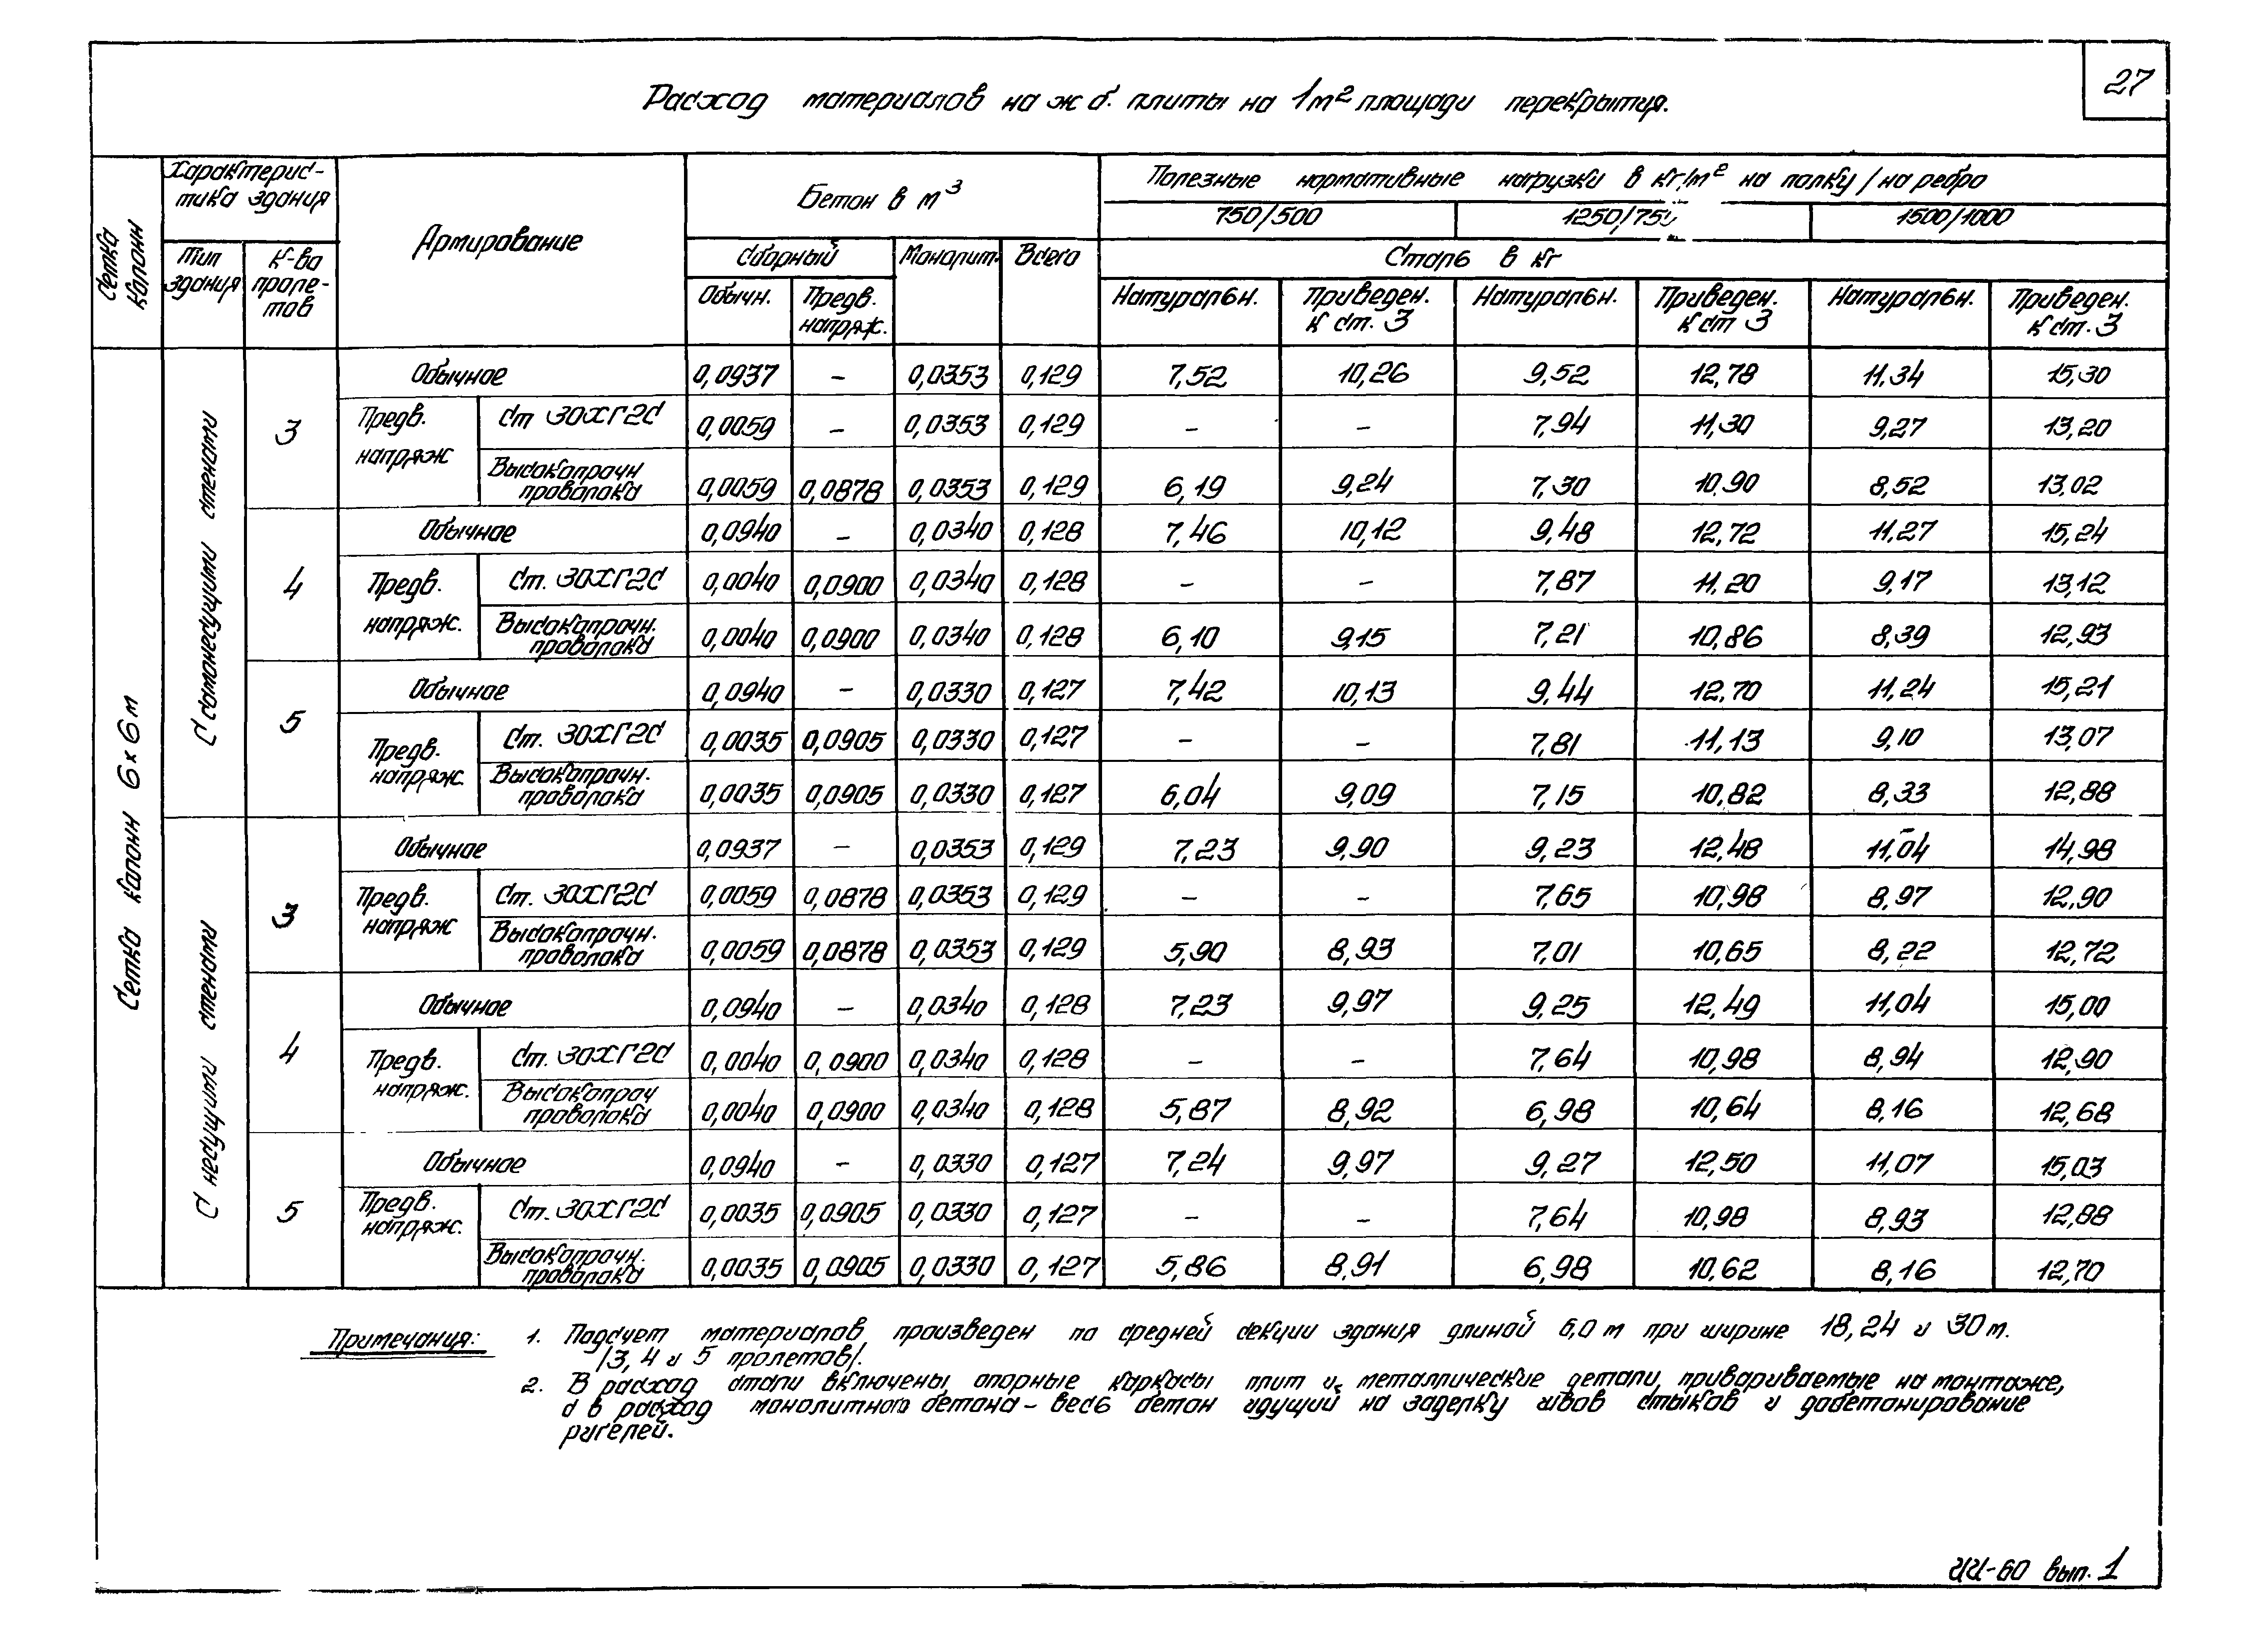 27
Расход материалов на ж б. плиты на 1м² площади перекрытия.
Сетка колонн
Характерис-
тика здания
Армирование
Бетон в м³
Полезные нормативные нагрузки в кг/м² на полку/на ребро
750/500 1250/75 1500/1000
Тип здания
К-во проле-
тов
Сборный Монолит. Всего Сталь в кг
Обычн. Предв. напряж. Натуральн. Приведен. к ст. 3 Натуральн. Приведен. к ст 3 Натуральн. Приведен. к ст. 3
Сетка колонн 6×6м
С самонесущими стенами
3
Обычное 0,0937 – 0,0353 0,129 7,52 10,26 9,52 12,78 11,34 15,30
Предв. напряж Ст 30ХГ2С 0,0059 – 0,0353 0,129 – – 7,94 11,30 9,27 13,20
Высокопрочн проволока 0,0059 0,0878 0,0353 0,129 6,19 9,24 7,30 10,90 8,52 13,02
4
Обычное 0,0940 – 0,0340 0,128 7,46 10,12 9,48 12,72 11,27 15,24
Предв. напряж. Ст. 30ХГ2С 0,0040 0,0900 0,0340 0,128 – – 7,87 11,20 9,17 13,12
Высокопрочн. проволока 0,0040 0,0900 0,0340 0,128 6,10 9,15 7,21 10,86 8,39 12,93
5
Обычное 0,0940 – 0,0330 0,127 7,42 10,13 9,44 12,70 11,24 15,21
Предв. напряж. Ст. 30ХГ2С 0,0035 0,0905 0,0330 0,127 – – 7,81 11,13 9,10 13,07
Высокопрочн. проволока 0,0035 0,0905 0,0330 0,127 6,04 9,09 7,15 10,82 8,33 12,88
С несущими стенами
3
Обычное 0,0937 – 0,0353 0,129 7,23 9,90 9,23 12,48 11,04 14,98
Предв. напряж Ст. 30ХГ2С 0,0059 0,0878 0,0353 0,129 – – 7,65 10,98 8,97 12,90
Высокопрочн. проволока 0,0059 0,0878 0,0353 0,129 5,90 8,93 7,01 10,65 8,22 12,72
4
Обычное 0,0940 – 0,0340 0,128 7,23 9,97 9,25 12,49 11,04 15,00
Предв. напряж. Ст. 30ХГ2С 0,0040 0,0900 0,0340 0,128 – – 7,64 10,98 8,94 12,90
Высокопроч проволока 0,0040 0,0900 0,0340 0,128 5,87 8,92 6,98 10,64 8,16 12,68
5
Обычное 0,0940 – 0,0330 0,127 7,24 9,97 9,27 12,50 11,07 15,03
Предв. напряж. Ст. 30ХГ2С 0,0035 0,0905 0,0330 0,127 – – 7,64 10,98 8,93 12,88
Высокопрочн. проволока 0,0035 0,0905 0,0330 0,127 5,86 8,91 6,98 10,62 8,16 12,70
Примечания: 1. Подсчет материалов произведен по средней секции здания длиной 6,0 м при ширине 18, 24 и 30 м.
/3, 4 и 5 пролетов/.
2. В расход стали включены опорные каркасы плит и металлические детали, привариваемые на монтаже,
а в расход монолитного бетона – весь бетон идущий на заделку швов стыков и добетонирование
ригелей.
ИИ-60 вып. 1